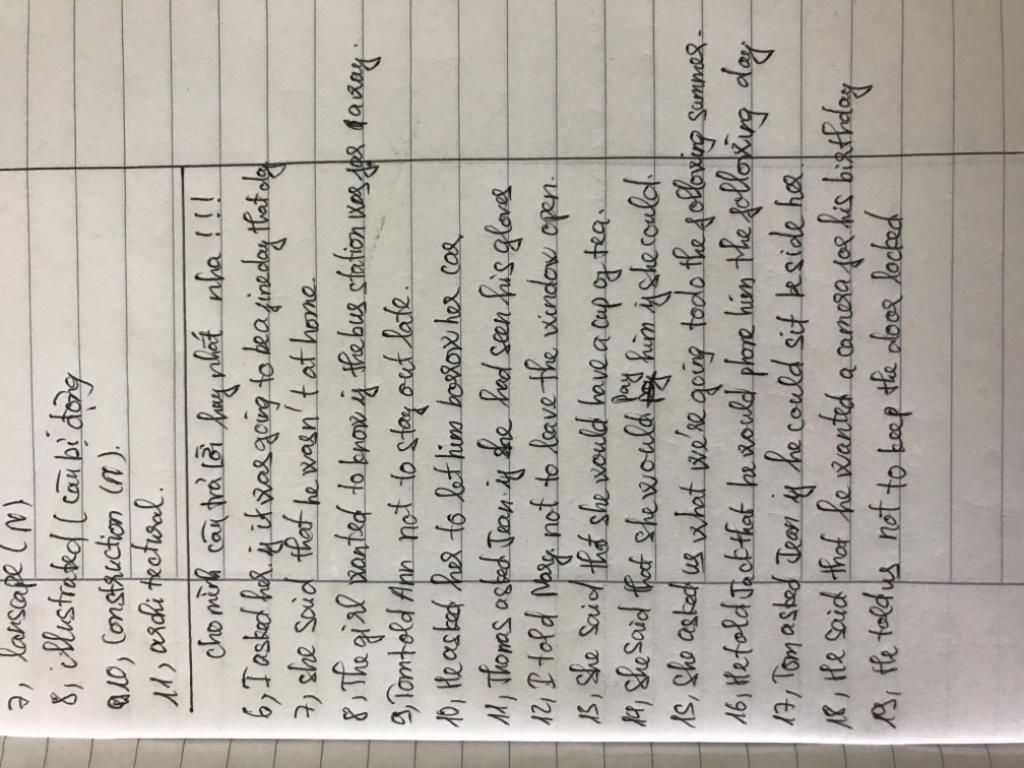 7, lanscape (N)
8, illustrated (câu bị động
10, Construction (n).
11, architectural.
cho mình câu trả lời hay nhất nha ! ! !
6, I asked her if it was going to be a fine day that day
7, she said that he wasn't at home.
8, The girl wanted to know if the bus station was far away.
9, Tom told Ann not to stay out late.
10, He asked her to let him borrow her car
11, Thomas asked Jean if she had seen his gloves
12, I told Mary not to leave the window open.
13, She said that she would have a cup of tea.
14, She said that she would pay him if she could.
15, She asked us what we're going to do the following summer.
16, He told Jact that he would phone him the following day
17, Tom asked Jean if he could sit beside her.
18, He said that he wanted a camera for his birthday
19, He told us not to keep the door locked